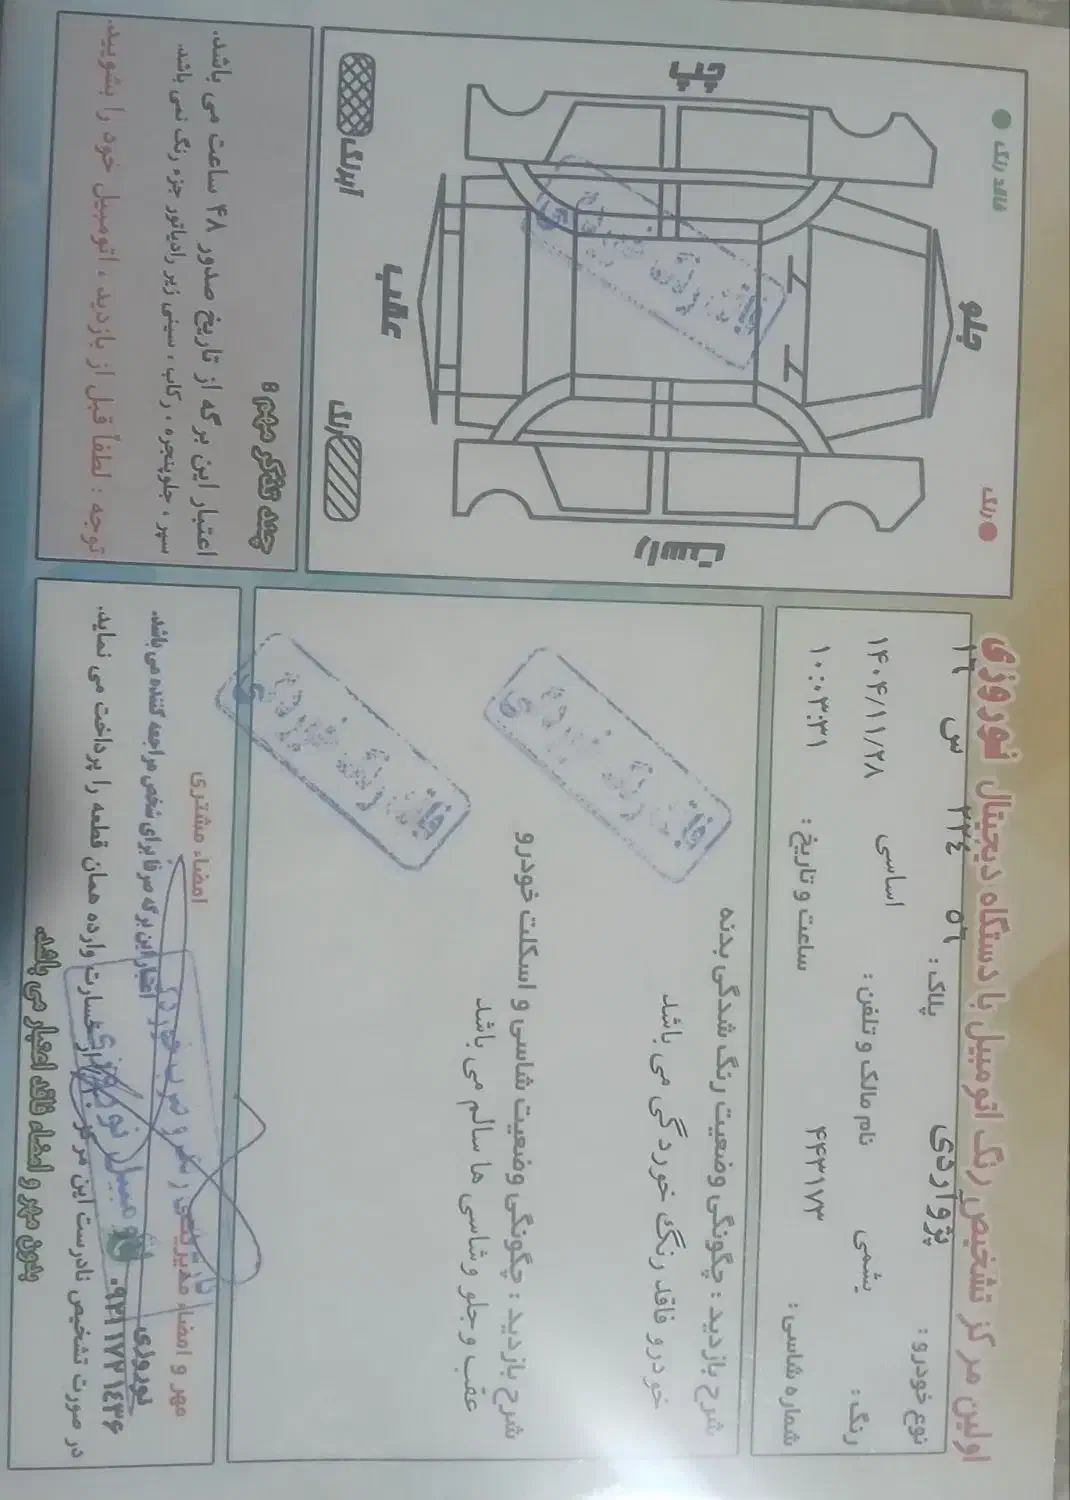 اولین مرکز تشخیص رنگ اتومبیل با دستگاه دیجیتال نوروزی
نوع خودرو: پژو آردی پلاک: ۵۶ ۲۲۴ س ۱۶
رنگ: یشمی نام مالک و تلفن: اساسی ۱۴۰۴/۱۱/۲۸
شماره شاسی: ۴۴۳۱۷۳ ساعت و تاریخ: ۱۰:۰۳:۳۱
شرح بازدید: چگونگی وضعیت رنگ شدگی بدنه
خودرو فاقد رنگ خوردگی می باشد
شرح بازدید: چگونگی وضعیت شاسی و اسکلت خودرو
عقب و جلو و شاسی ها سالم می باشد
فاقد رنگ خوردگی
فاقد رنگ خوردگی
مهر و امضاء مدیریت
امضاء مشتری
نوروزی
اعتبار این برگه صرفا برای شخص مراجعه کننده می باشد.
۰۹۲۱۱۷۲۱۴۳۶
در صورت تشخیص نادرست این مرکز خسارت وارده همان قطعه را پرداخت می نماید.
بدون مهر و امضاء فاقد اعتبار می باشد.
رنگ
فاقد رنگ
جلو
چپ
راست
عقب
فاقد رنگ خوردگی
رنگ
آبرنگ
چند تذکر مهم:
اعتبار این برگه از تاریخ صدور ۴۸ ساعت می باشد.
سپر، جلوپنجره، رکاب، سینی زیر رادیاتور جزء رنگ نمی باشد.
توجه: لطفاً قبل از بازدید، اتومبیل خود را بشویید.